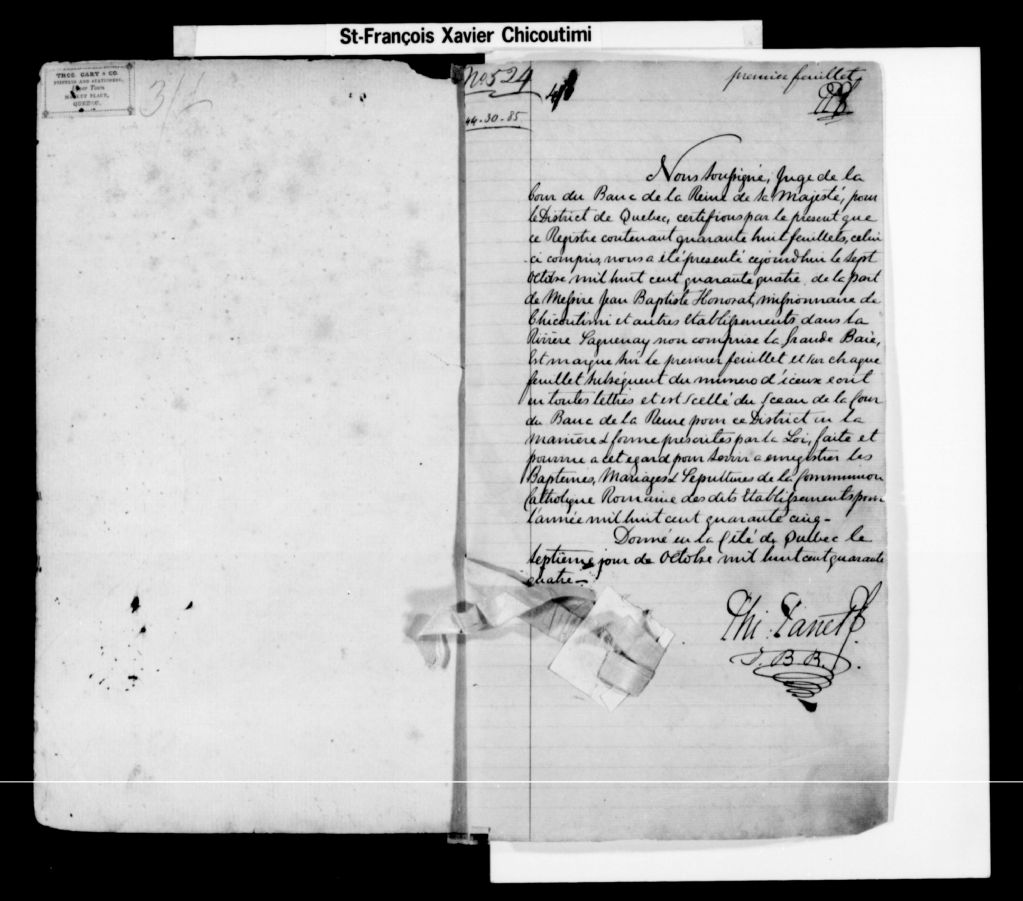 St-François Xavier Chicoutimi
THOS. CARY & CO.
PRINTERS AND STATIONERS,
Upper Town
MARKET PLACE,
QUEBEC.
3/
No 524
44-30-85
premier feuillet
Nous soussigné, Juge de la
Cour du Banc de la Reine de Sa Majesté, pour
le District de Quebec, certifions par le présent que
ce Registre contenant quarante huit feuillets, celui
ci compris, nous a été présenté cejourdhui le sept
Octobre mil huit cent quarante quatre de la part
de Messire Jean Baptiste Honorat, missionnaire de
Chicoutimi et autres Etablissements dans la
Rivière Saguenay non comprise la Grande Baie,
Est marqué sur le premier feuillet et sur chaque
feuillet subséquent du numero d'iceux ecrit
en toutes lettres et est scellé du sceau de la Cour
du Banc de la Reine pour ce District en la
manière & forme prescrites par la Loi, faite et
pourvue a cet egard pour servir a enregistrer les
Baptemes, Mariages & Sepultures de la Communion
Catholique Romaine des dits Etablissements pour
l'année mil huit cent quarante cinq -
Donné en la Cité de Quebec le
septieme jour de Octobre mil huit cent quarante
quatre -
Phi. Panet
J. B. R.